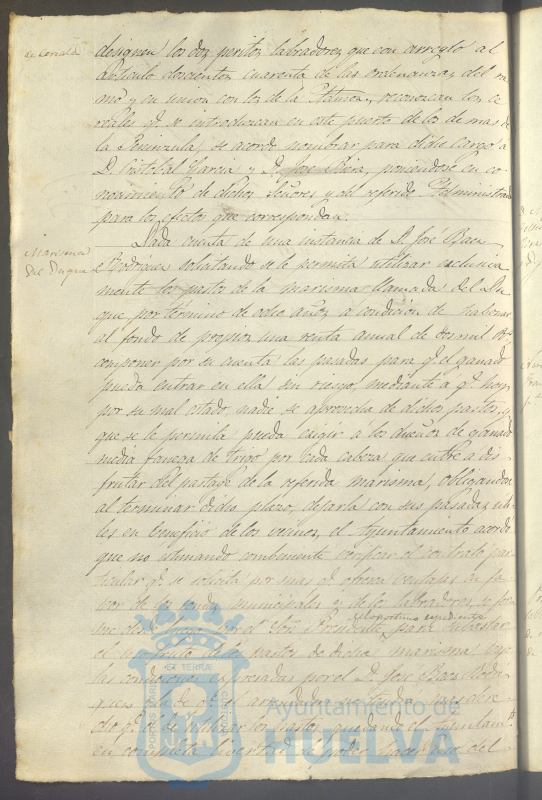 de Conald
designen los dos peritos labradores que con arreglo al
Articulo doscientos cuarenta de las ordenanzas del ra-
mo y en union con los de la reconozcan los ce-
reales qe. se introduzcan en este puerto de los demas de
la Peninsula, se acordo nombrar para dicho cargo a
D. Cristobal Garcia y D. Jose poniendose en co-
nocimiento de dichos Señores y del referido Administrador
para los efectos que correspondan.
Marisma
del Duque
Dada cuenta de una instancia de D. José Baez
Rodriguez solicitando se le permita utilizar esclusiva
mente los pastos de la marisma llamada del Du
que por término de ocho años a condicion de
al fondo de propios una renta anual de dos mil Rs.
componer por su cuenta las pasadas para qe. el ganado
pueda entrar en ella sin riesgo, mediante a qe. hoy
por su mal estado, nadie se aprovecha de dichos pastos, y
que se le permita pueda exigir á los dueños de ganado
media fanega de trigo por cada cabeza que entre a dis
frutar del pastage de la referida marisma, obligandose
al terminar dicho plazo, dejarla con sus pasadas uti-
les en beneficio de los vecinos, el Ayuntamiento acordó
que no estimando conveniente verificar el contrato par
ticular qe. se solicita por mas qe. ofrezca ventajas en fa-
vor de los fondos municipales y de los labradores, se for
me desde luego por el Sor. Presidente el oportuno espediente para subastar
el usufruto de los pastos de dicha marisma bajo
las condiciones espresadas por el D. José Baez Rodri-
guez
cho qe. el de utilizar los pastos quedando el Ayuntamto.
en completa libertad de poder hacer uso del
EX TERRAE
Ayuntamiento de
HUELVA